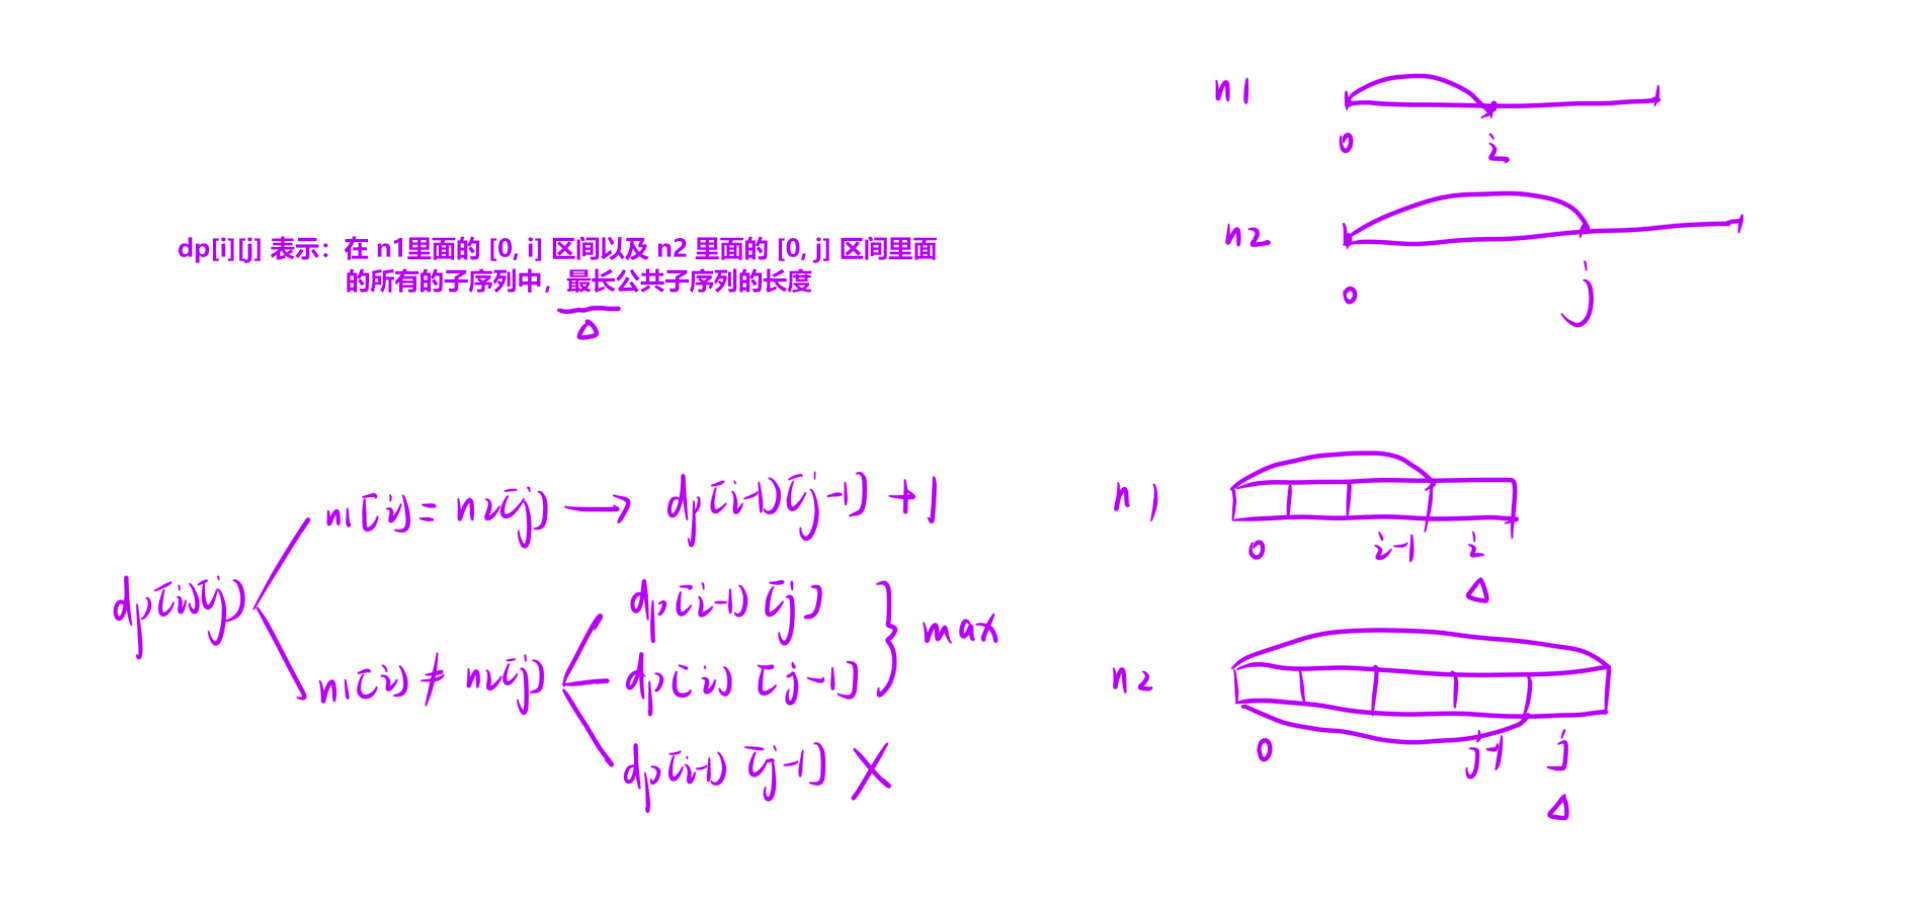 n1
0
i
n2
0
j
dp[i][j] 表示：在 n1里面的 [0, i] 区间以及 n2 里面的 [0, j] 区间里面
的所有的子序列中，最长公共子序列的长度
dp[i][j]
n1[i] = n2[j] → dp[i-1][j-1] + 1
n1[i] ≠ n2[j]
dp[i-1][j]
dp[i][j-1]
} max
dp[i-1][j-1] X
n1
0 i-1 i
n2
0 j-1 j